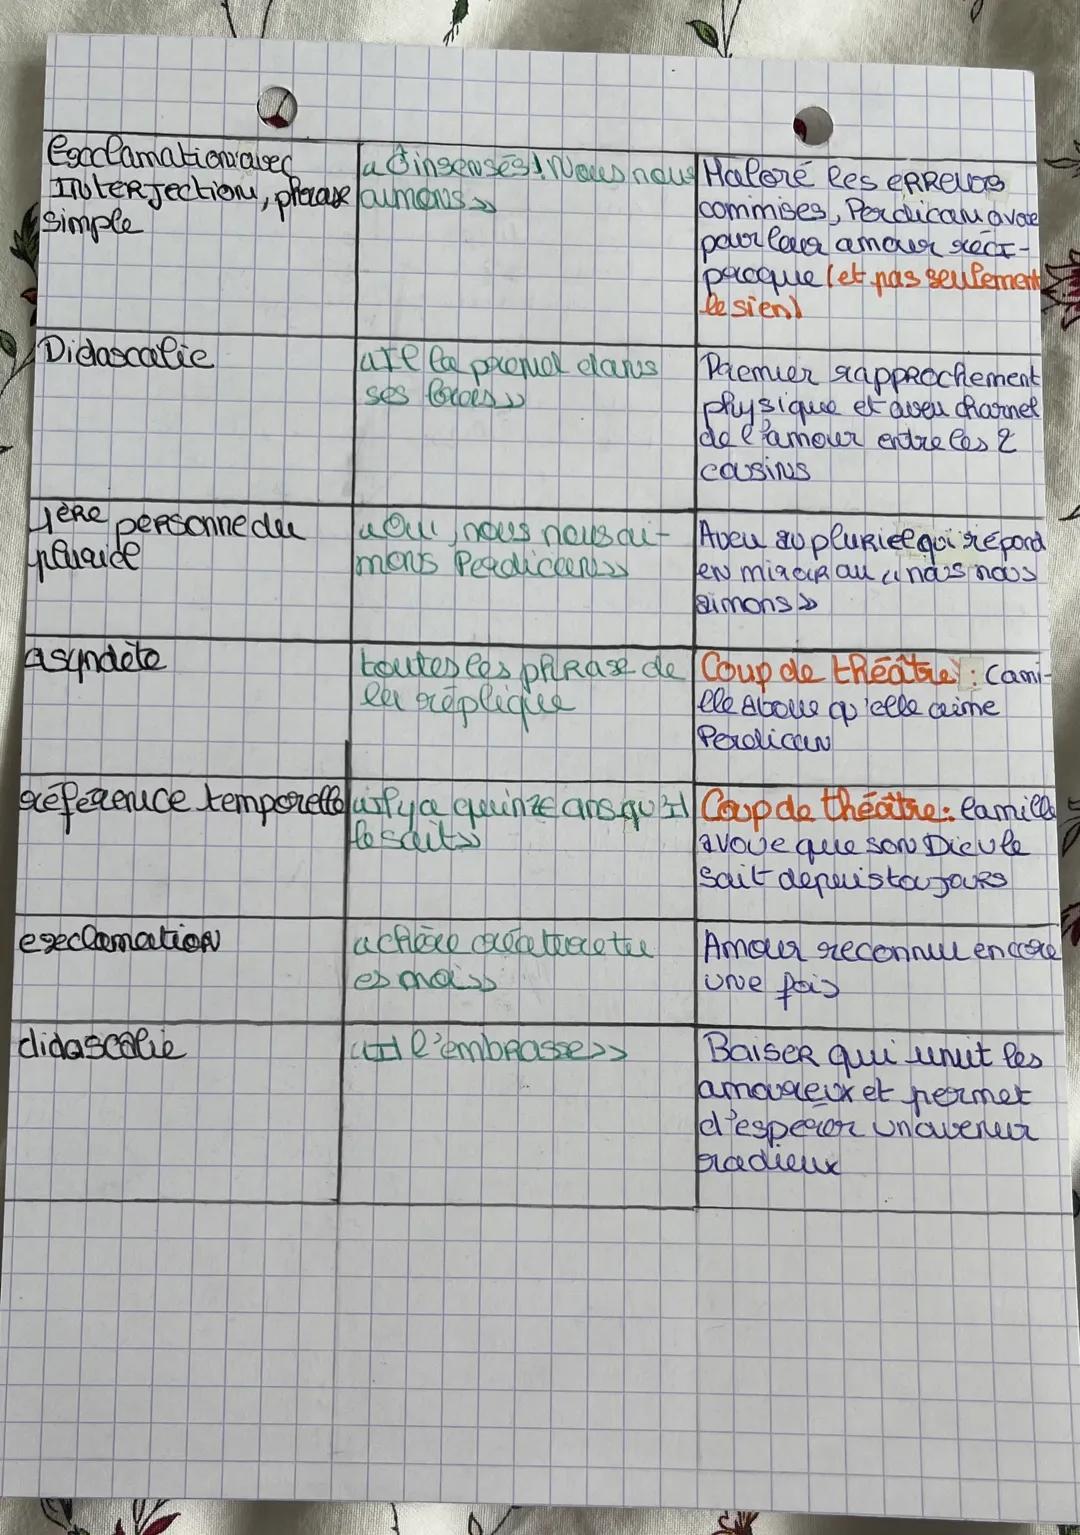 Exclamation avec
Interjection, phrase
simple
« Ô insensés! Nous nous
aimons »
Malgré les erreurs
commises, Perdican avoue
pour leur amour réci-
proque (et pas seulement
le sien)
Didascalie
« Il la prend dans
ses bras »
Premier rapprochement
physique et aveu charnel
de l'amour entre les 2
cousins
1ère personne du
pluriel
« Oui, nous nous ai-
mons Perdican »
Aveu au pluriel qui répond
en miroir au « nous nous
aimons »
asyndète
toutes les phrase de
la réplique
Coup de théâtre : Cami-
lle avoue qu'elle aime
Perdican
référence temporelle
« il y a quinze ans qu'il
le sait »
Coup de théâtre : Camille
avoue que son Dieu le
sait depuis toujours
exclamation
« chère créature tu
es moi »
Amour reconnu encore
une fois
didascalie
« Il l'embrasse »
Baiser qui unit les
amoureux et permet
d'espérer un avenir
radieux